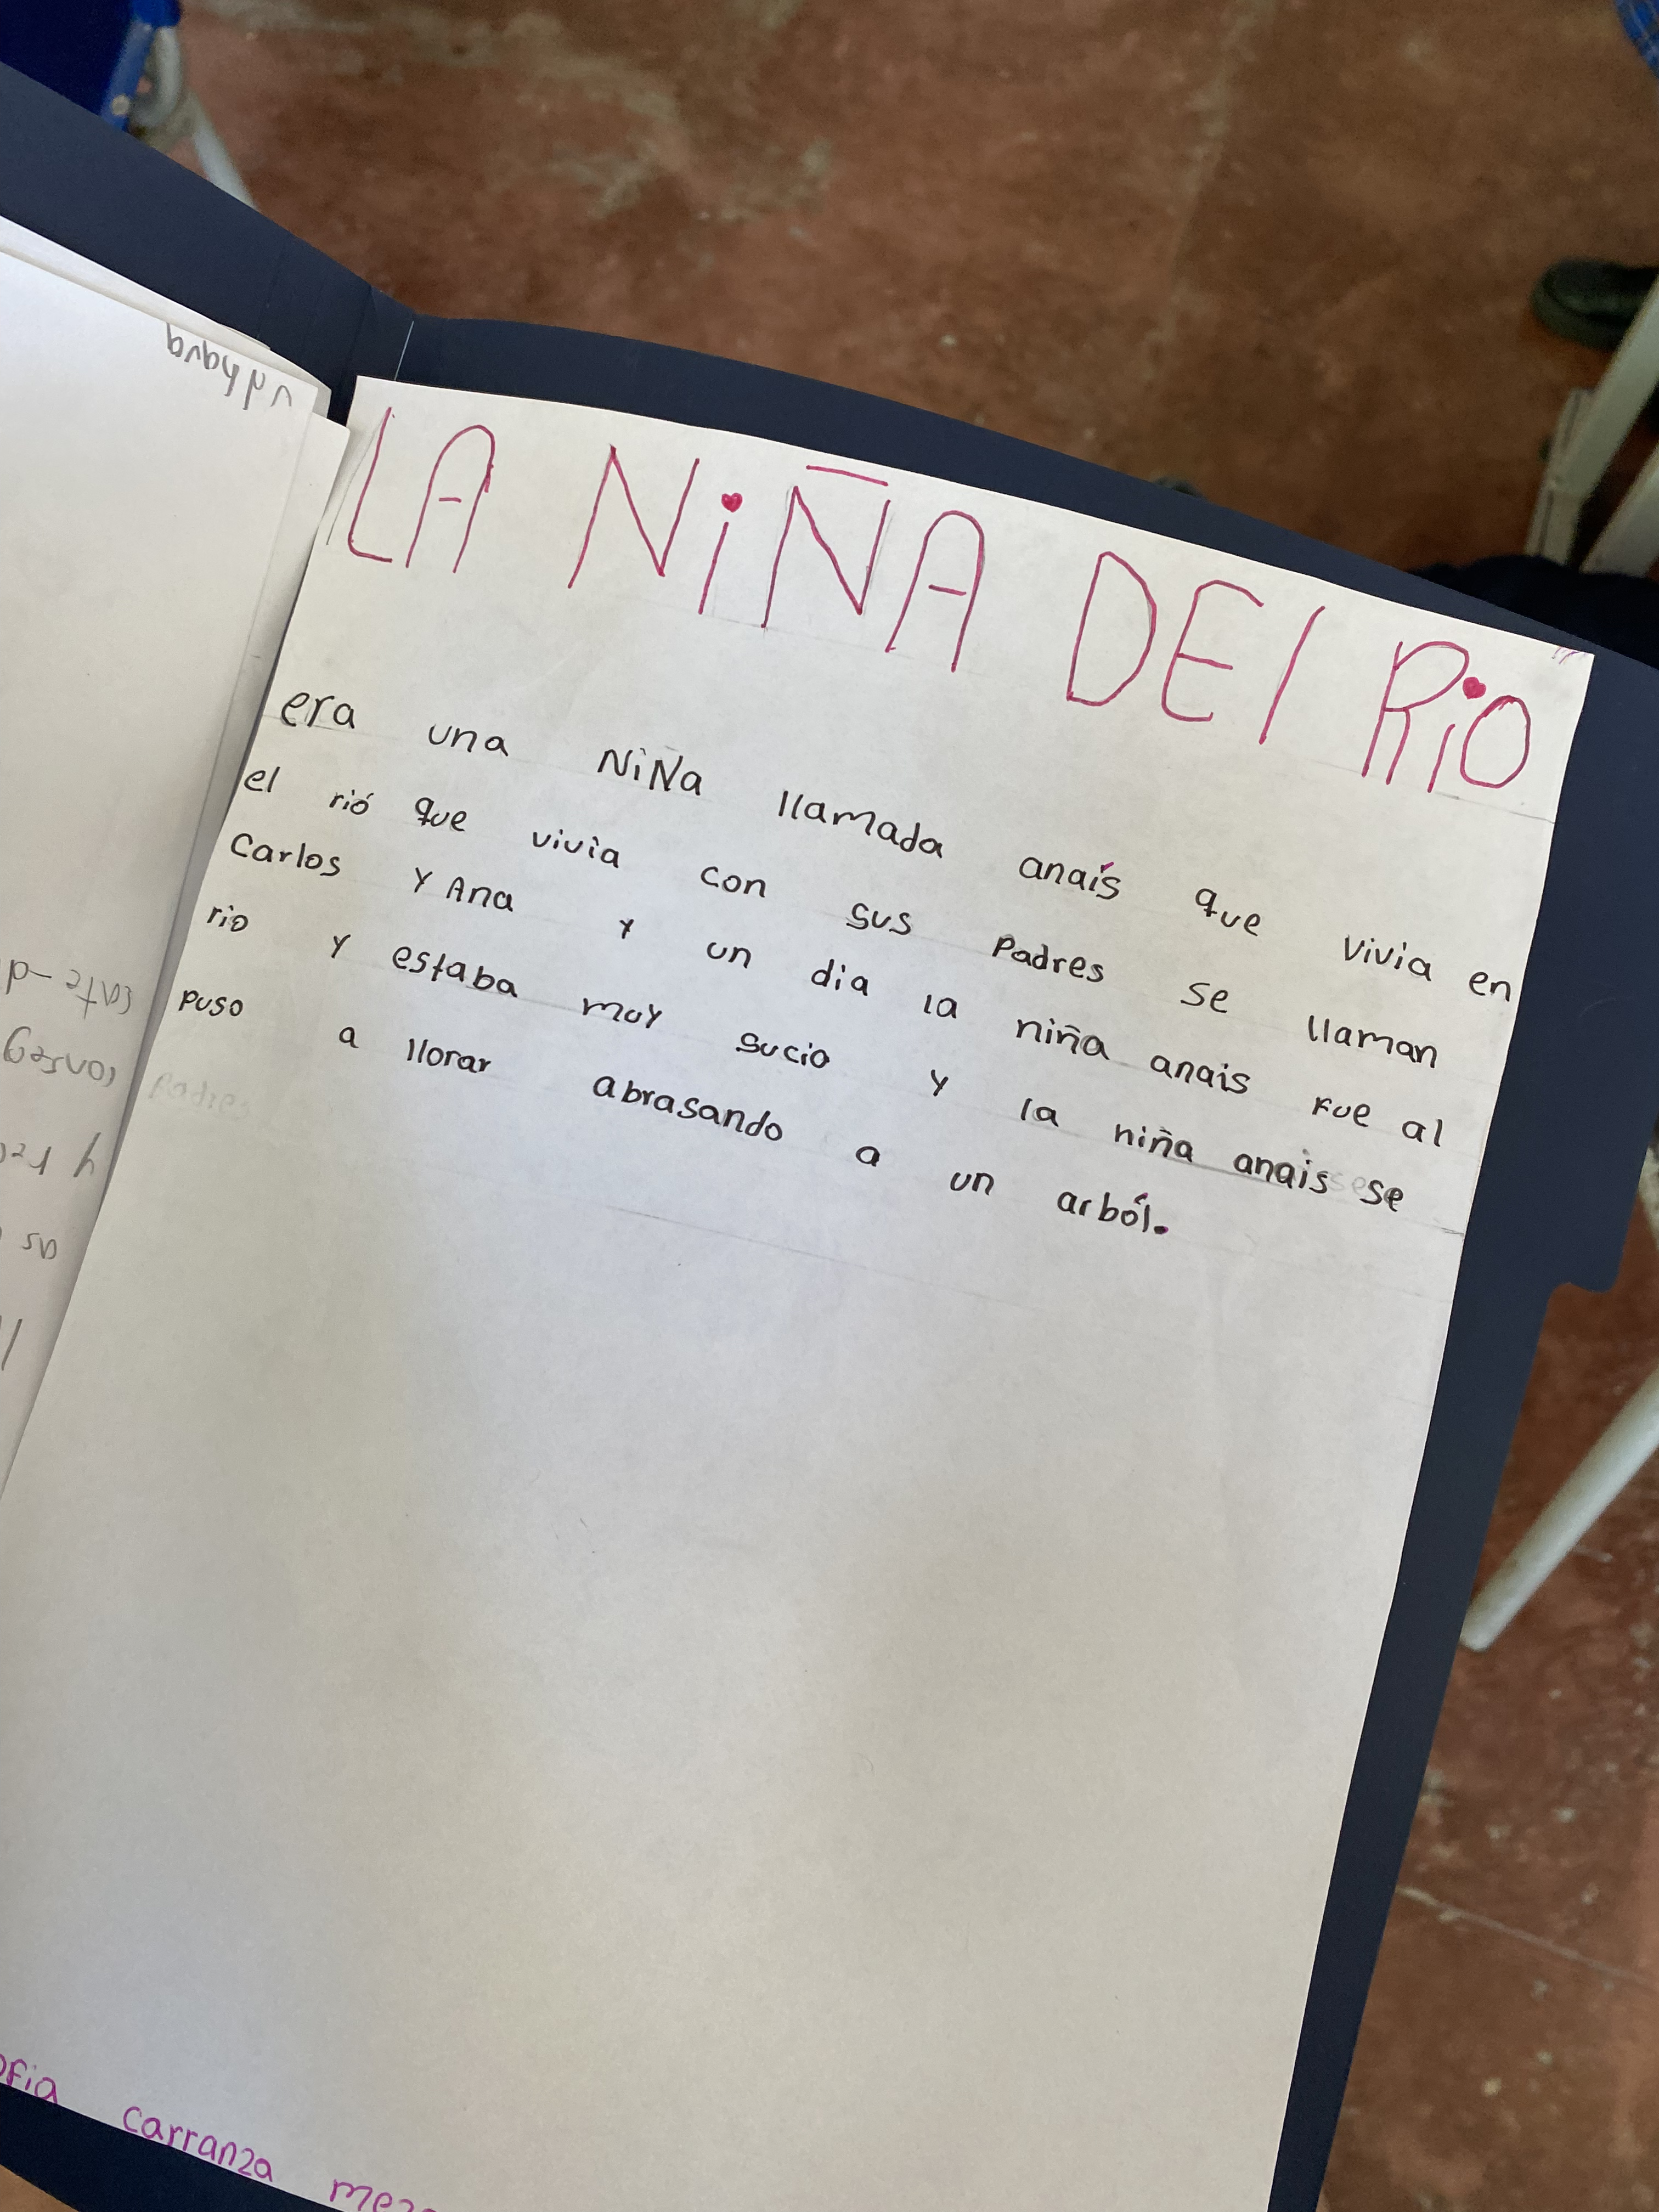 LA NiÑA DEl RiO
era una NiÑa llamada anaís que vivia en
el rió que vivia con sus Padres se llaman
Carlos Y Ana Y un dia la niña anais fue al
rio Y estaba muy sucio y la niña anais se
puso a llorar abrasando a un arból.
Padres
carranza